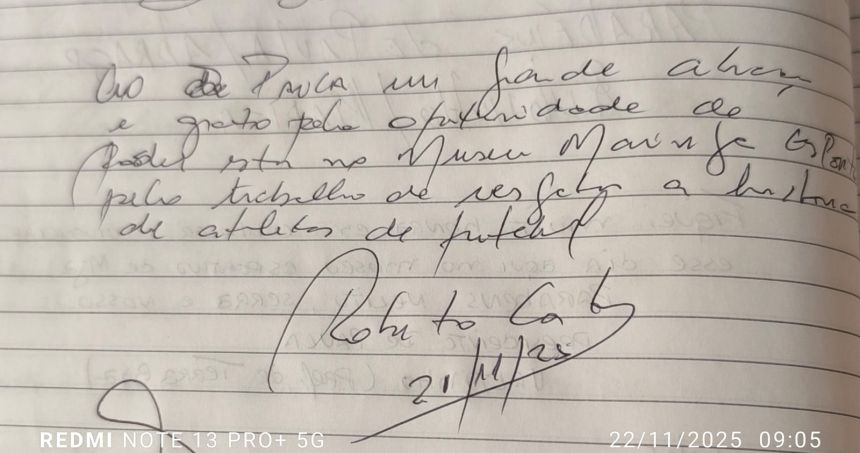 Ao De PAULA um grande abraço
e grato pela oportunidade de
poder esta no Museu Maringa Esport
pelo trabalho de resgata a historia
de atletas de futebol
Roberto
21/11/25
REDMI NOTE 13 PRO+ 5G
22/11/2025 09:05